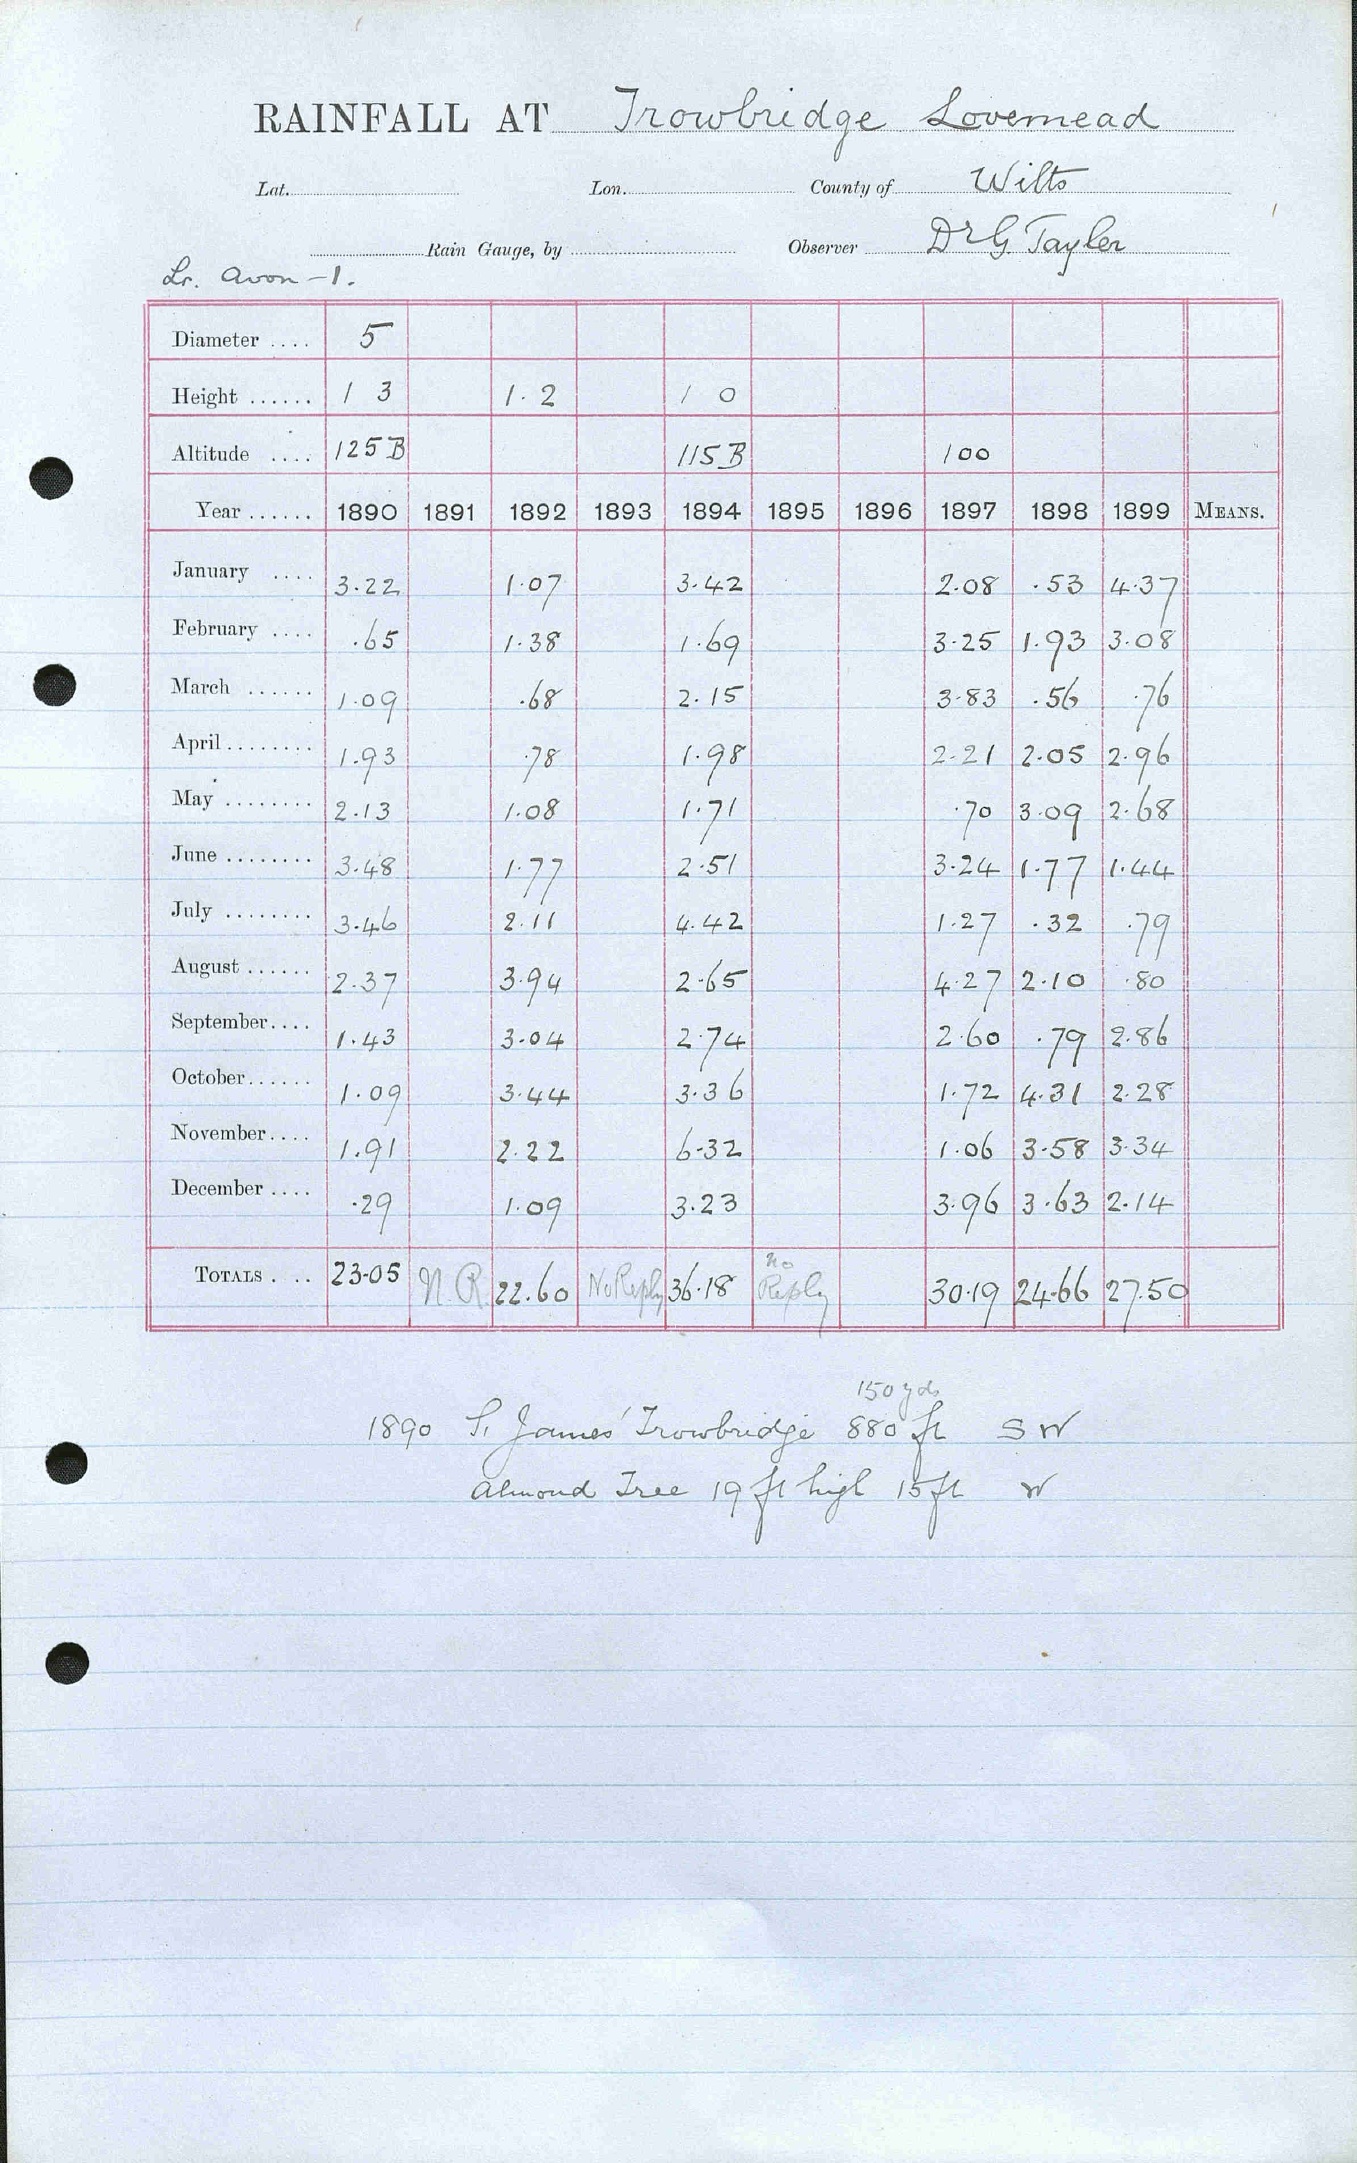 RAINFALL AT Trowbridge Lovemead
Lat. Lon. County of Wilts
Rain Gauge, by Observer Dr G. Tayler
Lr. Avon - 1.
Diameter .... 5
Height ...... 1 3 1. 2 1 0
Altitude .... 125 B 115 B 100
Year ...... 1890 1891 1892 1893 1894 1895 1896 1897 1898 1899 MEANS.
January .... 3.22 1.07 3.42 2.08 .53 4.37
February .... .65 1.38 1.69 3.25 1.93 3.08
March ...... 1.09 .68 2.15 3.83 .56 .76
April ........ 1.93 .78 1.98 2.21 2.05 2.96
May ........ 2.13 1.08 1.71 .70 3.09 2.68
June ........ 3.48 1.77 2.51 3.24 1.77 1.44
July ........ 3.46 2.11 4.42 1.27 .32 .79
August ...... 2.37 3.94 2.65 4.27 2.10 .80
September.... 1.43 3.04 2.74 2.60 .79 2.86
October...... 1.09 3.44 3.36 1.72 4.31 2.28
November.... 1.91 2.22 6.32 1.06 3.58 3.34
December .... .29 1.09 3.23 3.96 3.63 2.14
TOTALS . .. 23.05 N.R. 22.60 No Reply 36.18 No Reply 30.19 24.66 27.50
150 yds
1890 St. James' Trowbridge 880 ft S W
Almond Tree 19 ft high 15 ft W